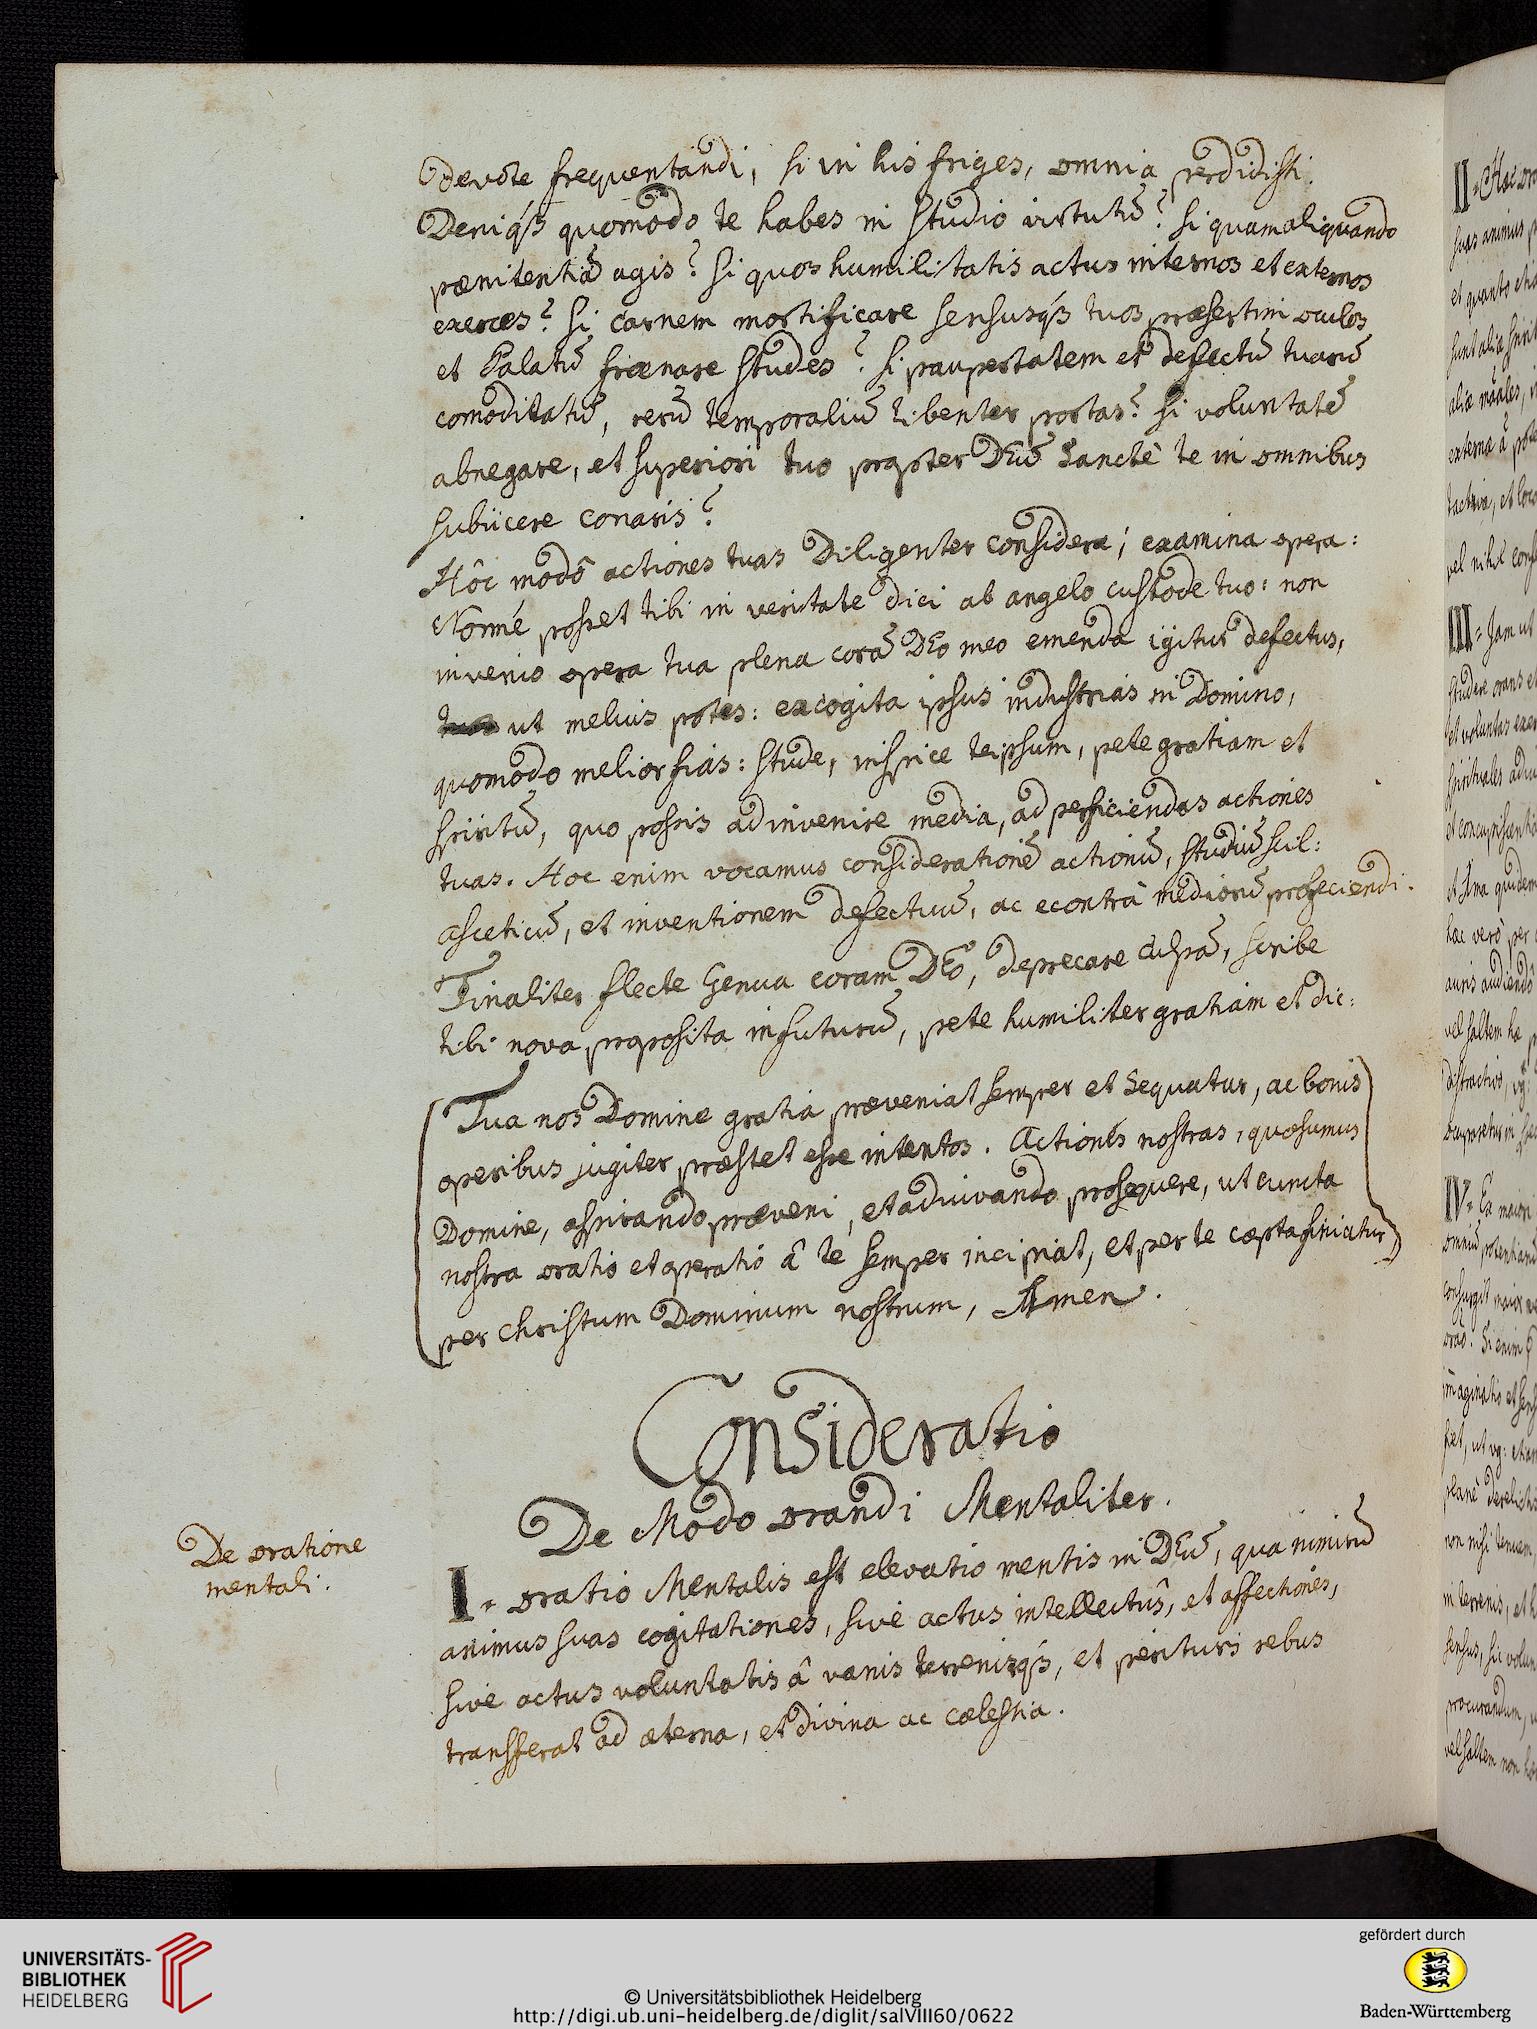 devote frequentandi, si in his friges, omnia perdidisti.
Deniqꝫ quomodo te habes in studio virtutū? si quam aliquando
pœnitentiā agis? si quos humilitatis actus internos et externos
exerces? si carnem mortificare sensusqꝫ tuos, præsertim oculos
et Palatū frænare studes? si paupertatem et defectū tuarū
comoditatū, rerū temporaliū libenter portas? si voluntatē
abnegare, et superiori tuo propter DEū sanctè te in omnibus
subiicere conaris?
Hôc modô actiones tuas diligenter considera; examina opera:
Nonné posset tibi in veritate dici ab angelo custode tuo: non
invenio opera tua plena corā DEo meo emenda igitur defectus,
ut melius potes: excogita ipsus industrias in Domino,
quomodo melior fias: stude, inspice teipsum, pete gratiam et
spiritū, quo possis adinvenire media, ad perficiendas actiones
tuas. Hoc enim vocamus considerationē actionū, studiū scil:
asceticū, et inventionem defectuū, ac econtrà mediorū proficiendi.
Finaliter flecte Genua coram DEo, deprecare culpā, scribe
tibi nova proposita in futurū, pete humiliter gratiam et dic:
Tua nos Domine gratia præveniat semper et sequatur, ac bonis
operibus jugiter præstet esse intentos. Actiones nostras, quæsumus
Domine, aspirando præveni, et adiuvando prosequere, ut cuncta
nostra oratio et operatio â te semper incipiat, et per te cœpta finiatur
per Christum Dominum nostrum, Amen.
Consideratio
De Modo orandi Mentaliter.
De oratione
mentali.
I. oratio Mentalis est elevatio mentis in DEū, qua nimirū
animus suas cogitationes, sive actus intellectûs, et affectiones,
sive actus voluntatis â vanis terrenisqꝫ, et perituris rebus
transferat ad æterna, et divina ac cælestia.
II. Hac
suas animus
et quanto
III. Jam ut
IV. Ex maiori
UNIVERSITÄTS-
BIBLIOTHEK
HEIDELBERG
© Universitätsbibliothek Heidelberg
http://digi.ub.uni-heidelberg.de/diglit/salVIII60/0622
gefördert durch
Baden-Württemberg